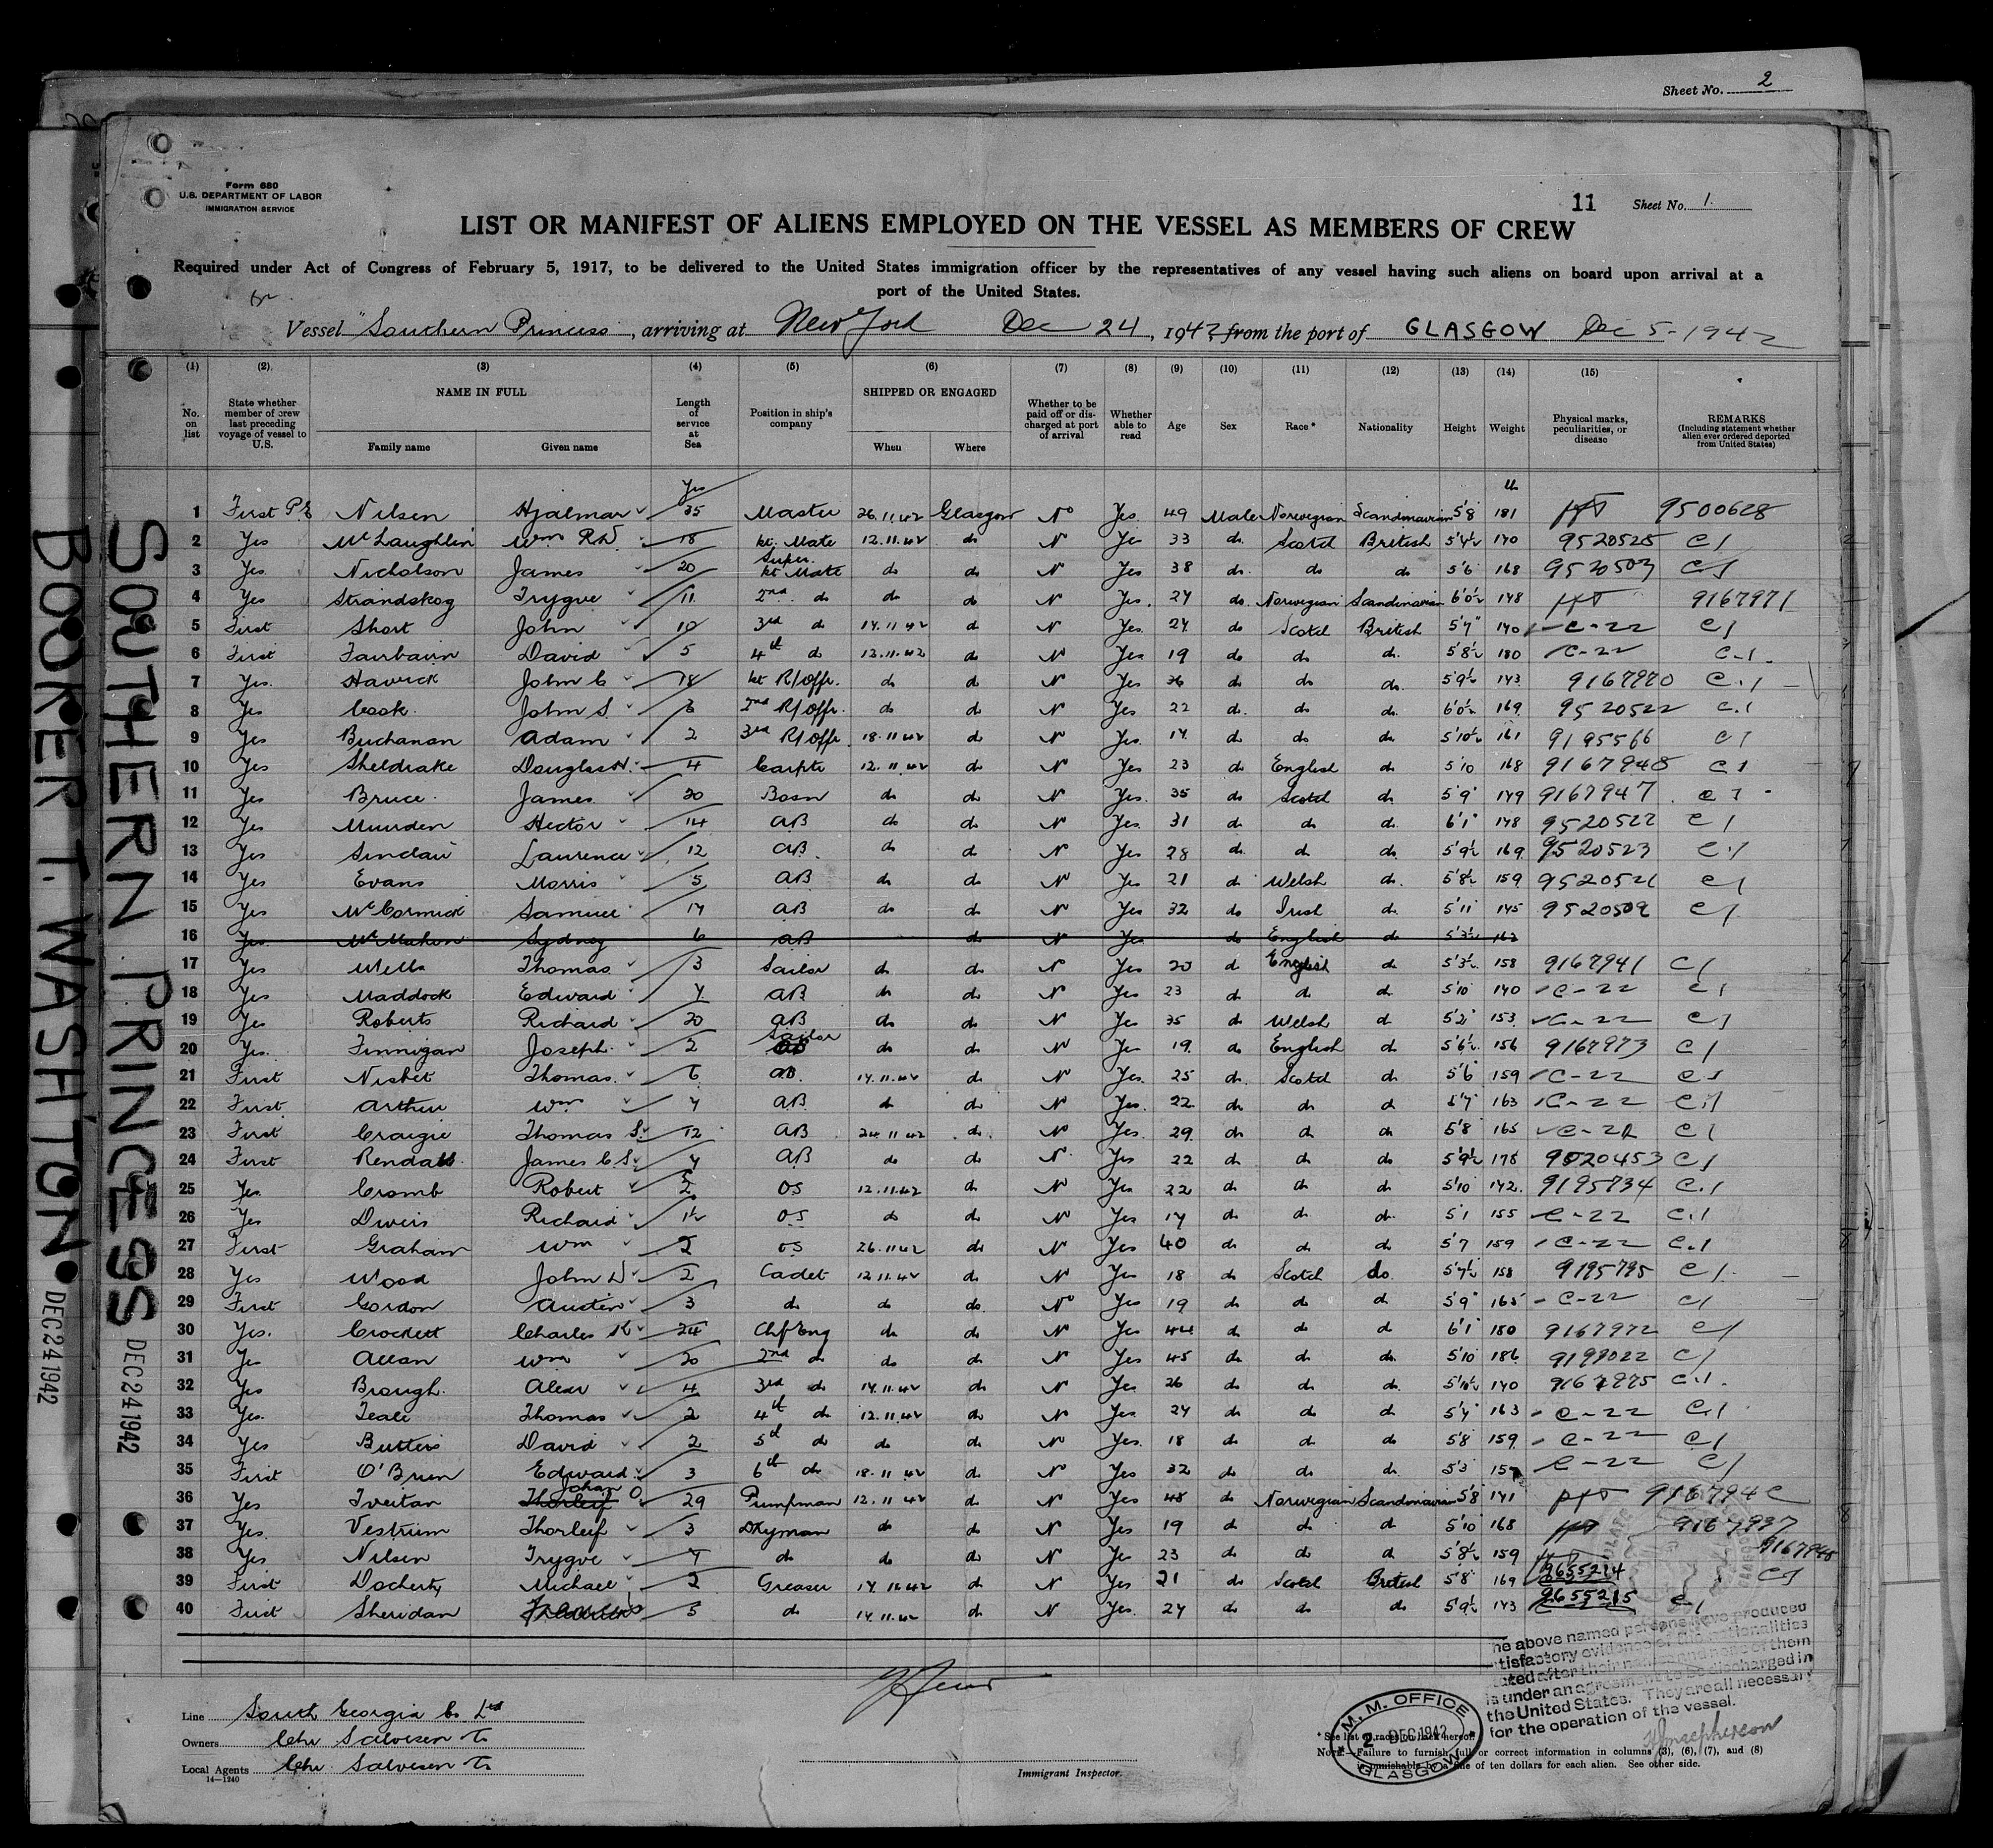 Sheet No. 2
Form 680
U.S. DEPARTMENT OF LABOR
IMMIGRATION SERVICE
11 Sheet No. 1.
LIST OR MANIFEST OF ALIENS EMPLOYED ON THE VESSEL AS MEMBERS OF CREW
Required under Act of Congress of February 5, 1917, to be delivered to the United States immigration officer by the representatives of any vessel having such aliens on board upon arrival at a
port of the United States.
Vessel "Southern Princess, arriving at New York Dec 24, 1942 from the port of GLASGOW Dec 5-1942
(1) (2) (3) (4) (5) (6) (7) (8) (9) (10) (11) (12) (13) (14) (15)
No. on list State whether member of crew last preceding voyage of vessel to U.S. NAME IN FULL Family name Given name Length of service at Sea Position in ship's company SHIPPED OR ENGAGED When Where Whether to be paid off or discharged at port of arrival Whether able to read Age Sex Race* Nationality Height Weight Physical marks, peculiarities, or disease REMARKS (Including statement whether alien ever ordered deported from United States)
Yrs
1 First Nilsen Hjalmar 35 Master 26.11.42 Glasgow No Yes 49 Male Norwegian Scandinavian 5'8 181 9500628
2 Yes McLaughlin Wm 18 Mate 12.11.42 do N Yes 33 do Scotch British 5'4½ 140 9520525 C1
3 Yes Nicholson James 20 Super. Mate do do N Yes 38 do do do 5'6 168 9520503 C1
4 Yes Strandskog Trygve 11 2nd do do do N Yes 27 do Norwegian Scandinavian 6'0½ 148 9167971
5 First Short John 10 3rd do 14.11.42 do N Yes 27 do Scotch British 5'7" 140 C-22 C1
6 First Fairbairn David 5 4th do 13.11.42 do N Yes 19 do do do 5'8½ 180 C-22 C-1
7 Yes Hawick John C 18 R/Offr. do do N Yes 36 do do do 5'9½ 143 9167970 C.1
8 Yes Cook John S. 3 2nd R/Offr. do do N Yes 22 do do do 6'0½ 169 9520522 C.1
9 Yes Buchanan Adam 2 3rd R/Offr. 18.11.42 do N Yes 17 do do do 5'10½ 161 9195566 C1
10 Yes Sheldrake Douglas H. 4 Carptr 12.11.42 do N Yes 23 do English do 5'10 168 9167948 C1
11 Yes Bruce James 20 Bosn do do N Yes 35 do Scotch do 5'9" 149 9167947 C1
12 Yes Muirden Hector 14 AB do do N Yes 31 do do do 6'1" 148 9520522 C1
13 Yes Sinclair Laurence 12 AB do do N Yes 28 do do do 5'9½ 169 9520523 C.1
14 Yes Evans Morris 5 AB do do N Yes 21 do Welsh do 5'8½ 159 9520521 C1
15 Yes McCormick Samuel 17 AB do do N Yes 32 do Irish do 5'11 145 9520502 C1
16 Yes McMahon Sydney 6 AB do N Yes do English do 5'3½ 162
17 Yes Wells Thomas 3 Sailor do do N Yes 20 do English do 5'3½ 158 9167941 C1
18 Yes Maddock Edward 7 AB do do N Yes 23 do do do 5'10 140 C-22 C1
19 Yes Roberts Richard 20 AB do do N Yes 35 do Welsh do 5'2" 153 C-22 C1
20 Yes Finnigan Joseph 2 Sailor do do N Yes 19 do English do 5'6½ 156 9167973 C1
21 First Nisbet Thomas 6 AB 14.11.42 do N Yes 25 do Scotch do 5'6 159 C-22 C1
22 First Arthur Wm 7 AB do do N Yes 22 do do do 5'7 163 C-22 C.1
23 First Craigie Thomas S. 12 AB 24.11.42 do N Yes 29 do do do 5'8 165 C-22 C1
24 First Rendall James C S. 7 AB do do N Yes 22 do do do 5'9½ 178 9520453 C1
25 Yes Cromb Robert 2 OS 12.11.42 do N Yes 22 do do do 5'10 142 9195734 C.1
26 Yes Richard 1½ OS do do N Yes 17 do do do 5'1 155 C-22 C.1
27 First Graham Wm 2 OS 26.11.42 do N Yes 40 do do do 5'7 159 C-22 C.1
28 Yes Wood John 2 Cadet 12.11.42 do N Yes 18 do Scotch do 5'7½ 158 9195795 C1
29 First Gordon Austin 3 do do do No Yes 19 do do do 5'9" 165 C-22 C1
30 Yes. Crockett Charles 24 Chf Eng do do N Yes 44 do do do 6'1 180 9167972 C1
31 Yes Allan Wm 20 2nd do do do N Yes 45 do do do 5'10 186 9199022 C1
32 Yes Brough Alexr 4 3rd do 14.11.42 do N Yes 26 do do do 5'10½ 140 9167975 C.1
33 Yes. Teale Thomas 2 4th do 12.11.42 do N Yes 27 do do do 5'7" 163 C-22 C.1
34 Yes Butters David 2 5th do do do N Yes 18 do do do 5'8 159 C-22 C1
35 First O'Brien Edward 3 6th do 18.11.42 do No Yes 32 do do do 5'3 C-22 C1
36 Yes Tveitan Thorleif Johan O. 29 Pumpman 12.11.42 do N Yes 48 do Norwegian Scandinavian 5'8 141
37 Yes Vestrum Thorleif 3 Dkyman do do N Yes 19 do do do 5'10 168 9167937
38 Yes Nilsen Trygve 7 do do do N Yes 23 do do do 5'8½ 159
39 First Docherty Michael 2 Greaser 14.11.42 do N Yes 21 do Scotch British 5'8 169 9655214 C1
40 First Sheridan 3 do 14.11.42 do N Yes 27 do do do 5'9½ 143 9655215 C1
Line South Georgia Co Ltd
Owners Chr Salvesen Co
Local Agents Chr Salvesen Co
14—1240
Immigrant Inspector.
M.M. OFFICE
2 DEC 1942
GLASGOW
he above named persons have produced
tisfactory evidence of the nationalities
tated after their names and none of them
is under an agreement to be discharged in
the United States. They are all necessary
for the operation of the vessel.
* See list of races on back hereof.
NOTE.—Failure to furnish full or correct information in columns (3), (6), (7), and (8)
is punishable by a fine of ten dollars for each alien. See other side.
SOUTHERN PRINCESS DEC 24 1942
BOOKER T. WASHTON DEC 24 1942